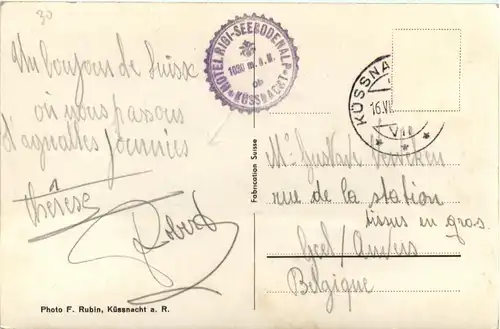 30
Un bonjour de Suisse
où nous passons
d'agréables journées
Thérèse
Robert
HOTEL RIGI-SEEBODENALP
1030 m. ü. M.
ob
KÜSSNACHT
KÜSSNA
16.VII
VII
Fabrication Suisse
Mr Gustave
rue de la station
en gros
Geel/Anvers
Belgique
Photo F. Rubin, Küssnacht a. R.